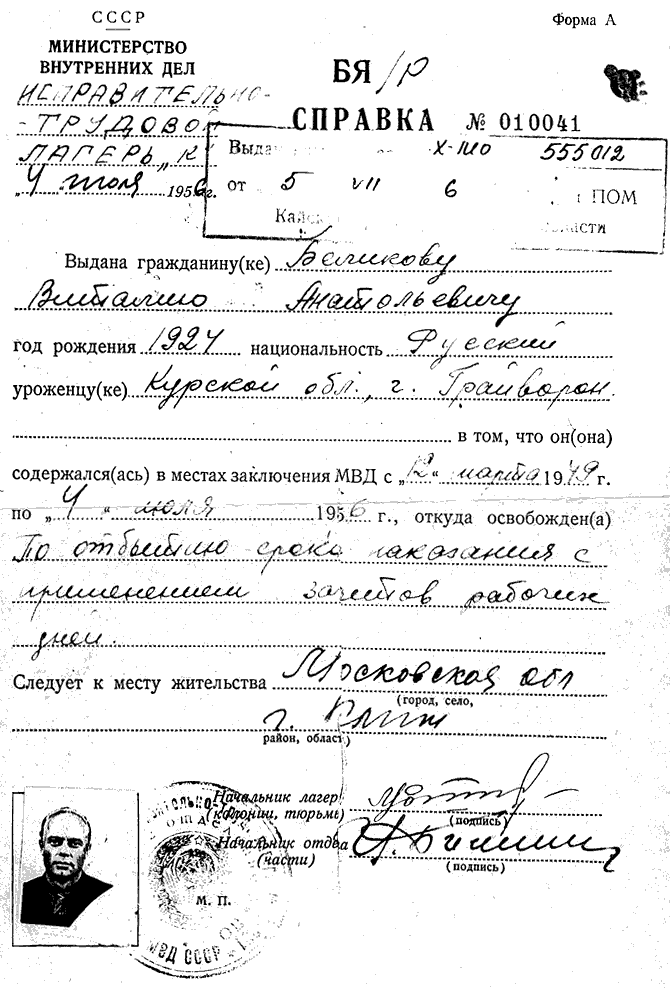 СССР
Форма А
МИНИСТЕРСТВО
ВНУТРЕННИХ ДЕЛ
ИСПРАВИТЕЛЬНО-
-ТРУДОВОЙ
ЛАГЕРЬ „К"
„4" июля 1956г.
БЯ/Р
СПРАВКА № 010041
Выда X-МЮ 555012
от 5 VII 6 ПОМ
Кайск области
Выдана гражданину(ке) Беликову
Виталию Анатольевичу
год рождения 1924 национальность Русский
уроженцу(ке) Курской обл., г. Грайворон.
в том, что он(она)
содержался(ась) в местах заключения МВД с „12" марта 1949 г.
по „4" июля 1956 г., откуда освобожден(а)
По отбытию срока наказания с
применением зачетов рабочих
дней.
Следует к месту жительства Московская обл
(город, село,
г. Клин
район, область)
Начальник лагеря
(колонии, тюрьмы)
(подпись)
Начальник отдела
(части)
(подпись)
М. П.
МВД СССР